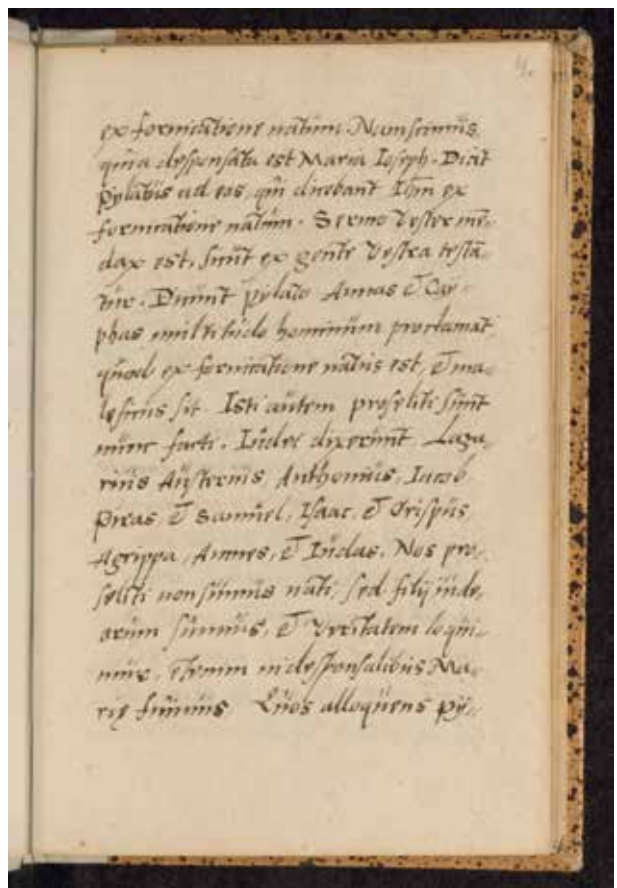 4.
ex fornicatione natum. Nam scimus,
quia desponsata est Maria Ioseph. Dicit
Pylatus ad eos, qui dicebant Iesum ex
fornicatione natum. Sermo vester mē„
dax est, sunt ex gente vestra testā„
tur. Dicunt pylato Annas et Cay„
phas multitudo hominum proclamat,
quod ex fornicatione natus est, et ma„
leficus sit. Isti autem proseliti sunt
nunc facti. Iudei dixerunt Laza„
rius Austerius, Anthonius, Iacob
Pireas et Samuel, Isaac, et Crispus,
Agrippa, Annes, et Iudas. Nos pro„
seliti non sumus nati, sed filij iude„
orum sumus, et veritatem loqui„
mur, etenim in desponsalibus Ma„
rię fuimus. Quos alloquens Py„